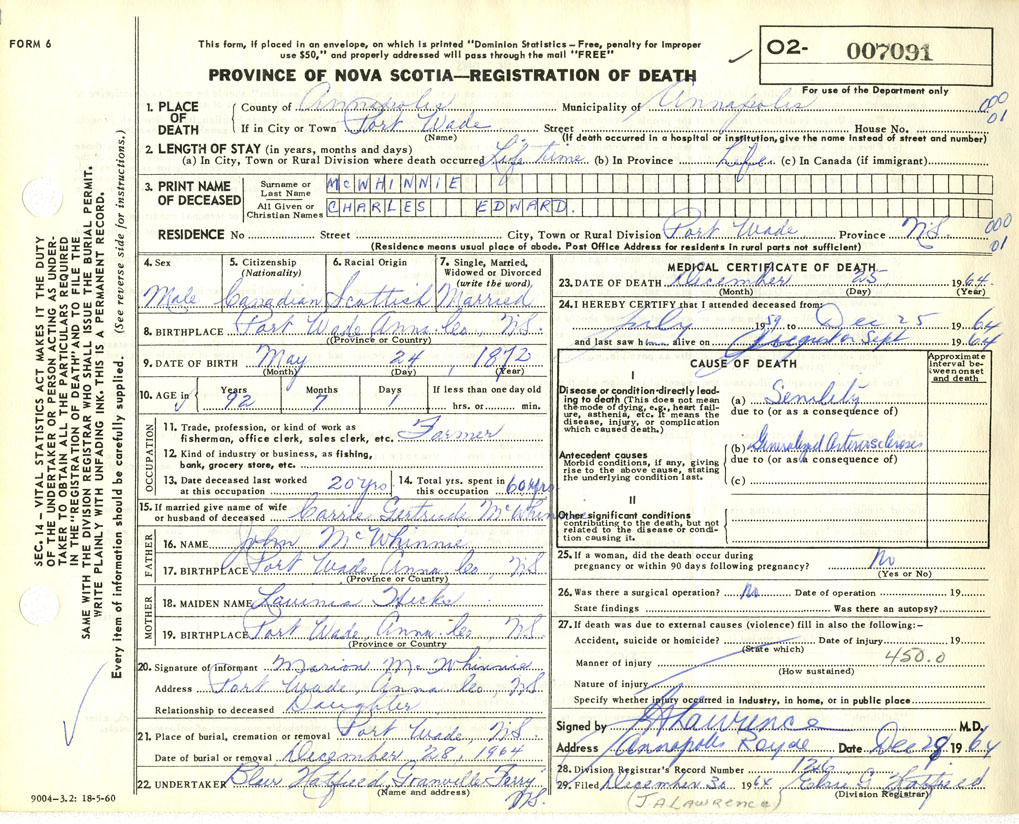 FORM 6
This form, if placed in an envelope, on which is printed "Dominion Statistics – Free, penalty for improper
use $50," and properly addressed will pass through the mail "FREE"
O2- 007091
For use of the Department only
PROVINCE OF NOVA SCOTIA—REGISTRATION OF DEATH
SEC. 14 – VITAL STATISTICS ACT MAKES IT THE DUTY
OF THE UNDERTAKER OR PERSON ACTING AS UNDER-
TAKER TO OBTAIN ALL THE PARTICULARS REQUIRED
IN THE "REGISTRATION OF DEATH" AND TO FILE THE
SAME WITH THE DIVISION REGISTRAR WHO SHALL ISSUE THE BURIAL PERMIT.
WRITE PLAINLY WITH UNFADING INK. THIS IS A PERMANENT RECORD.
Every item of information should be carefully supplied. (See reverse side for instructions.)
1. PLACE OF DEATH
County of Annapolis Municipality of Annapolis
000
01
If in City or Town Port Wade Street House No.
(Name) (If death occurred in a hospital or institution, give the name instead of street and number)
2. LENGTH OF STAY (in years, months and days)
(a) In City, Town or Rural Division where death occurred Life time (b) In Province Life (c) In Canada (if immigrant)
3. PRINT NAME OF DECEASED
Surname or Last Name McWHINNiE
All Given or Christian Names CHARLES EDWARD.
RESIDENCE No Street City, Town or Rural Division Port Wade Province N.S.
000
01
(Residence means usual place of abode. Post Office Address for residents in rural parts not sufficient)
4. Sex
Male
5. Citizenship (Nationality)
Canadian
6. Racial Origin
Scottish
7. Single, Married, Widowed or Divorced (write the word)
Married
8. BIRTHPLACE Port Wade Anna. Co, N.S.
(Province or Country)
9. DATE OF BIRTH May 24, 1872
(Month) (Day) (Year)
10. AGE in
Years 92
Months 7
Days 1
If less than one day old
hrs. or min.
OCCUPATION
11. Trade, profession, or kind of work as
fisherman, office clerk, sales clerk, etc. Farmer
12. Kind of industry or business, as fishing,
bank, grocery store, etc.
13. Date deceased last worked
at this occupation 20 yrs
14. Total yrs. spent in
this occupation 60 yrs
15. If married give name of wife
or husband of deceased Carrie Gertrude McWhinnie
FATHER
16. NAME John McWhinnie
17. BIRTHPLACE Port Wade Anna Co, N.S.
(Province or Country)
MOTHER
18. MAIDEN NAME Lavinia Hicks
19. BIRTHPLACE Port Wade, Anna. Co, N.S.
(Province or Country)
20. Signature of informant Marion McWhinnie
Address Port Wade, Anna Co, N.S.
Relationship to deceased Daughter
21. Place of burial, cremation or removal Port Wade, N.S.
Date of burial or removal December 28, 1964
22. UNDERTAKER Hatfield, Granville Ferry
(Name and address) N.S.
9004–3.2: 18-5-60
MEDICAL CERTIFICATE OF DEATH
23. DATE OF DEATH December 25, 1964
(Month) (Day) (Year)
24. I HEREBY CERTIFY that I attended deceased from:
July 1959 to Dec 25 1964
and last saw him alive on August or Sept 1964
CAUSE OF DEATH
Approximate interval between onset and death
I
Disease or condition directly leading to death (This does not mean the mode of dying, e.g., heart failure, asthenia, etc. It means the disease, injury, or complication which caused death.)
(a) Senility
due to (or as a consequence of)
Antecedent causes
Morbid conditions, if any, giving rise to the above cause, stating the underlying condition last.
(b) Generalized Arteriosclerosis
due to (or as a consequence of)
(c)
II
Other significant conditions
contributing to the death, but not related to the disease or condition causing it.
25. If a woman, did the death occur during
pregnancy or within 90 days following pregnancy? No
(Yes or No)
26. Was there a surgical operation? No Date of operation 19
State findings Was there an autopsy?
27. If death was due to external causes (violence) fill in also the following:–
Accident, suicide or homicide? Date of injury 19
(State which)
450.0
Manner of injury
(How sustained)
Nature of injury
Specify whether injury occurred in industry, in home, or in public place
Signed by Lawrence M.D.
Address Annapolis Royal Date Dec 29 1964
28. Division Registrar's Record Number 126
29. Filed December 30 1964 Hatfield
(Division Registrar)
(J.A. LAWRENCE)